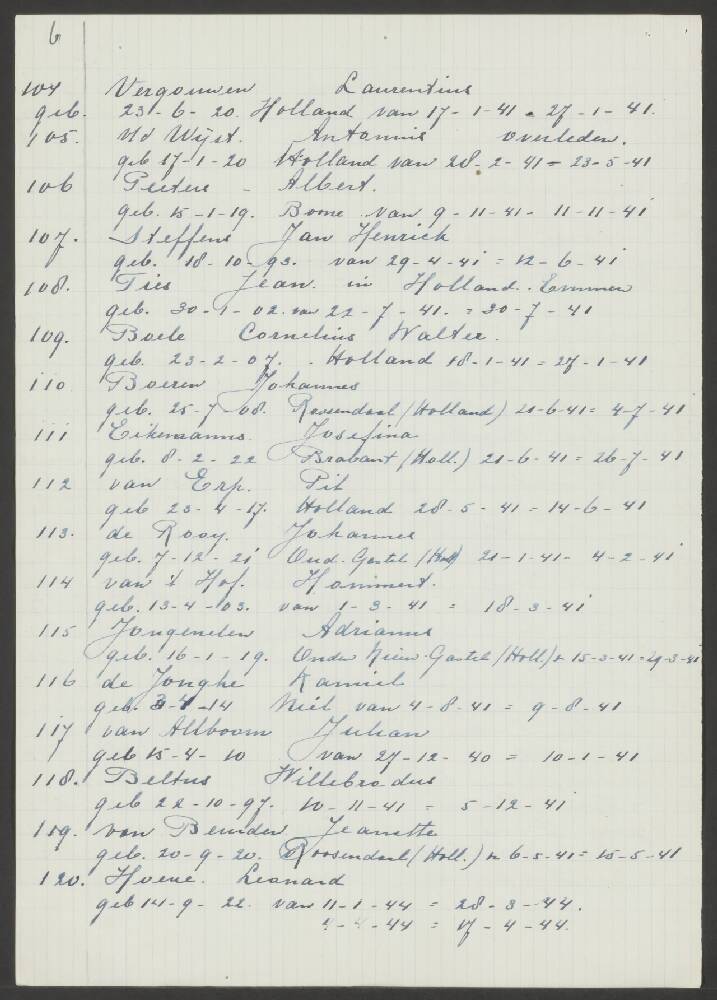 6
104 Vergouwen Laurentius
geb. 23-6-20. Holland van 17-1-41. 27-1-41.
105. v/d Wijst. Antonius overleden.
geb 17-1-20 Holland van 28-2-41 = 23-5-41
106 Peeters - Albert.
geb. 15-1-19. Boome van 9-11-41- 11-11-41
107. Steffens Jan Henrick
geb. 18-10-93. van 29-4-41 = 12-6-41
108. Ties Jean. in Holland. Emmen
geb. 30-1-02. van 22-7-41. = 30-7-41
109. Boele Cornelius Walter.
geb. 23-2-07. Holland 18-1-41 = 27-1-41
110 Boeren Johannes
geb. 25-7-08. Rosendaal (Holland) 21-6-41= 4-7-41
111 Eikemanns. Josefina
geb. 8-2-22 Brabant (Holl.) 21-6-41 = 26-7-41
112 van Erp. Pit
geb 23-4-17. Holland 28-5-41 = 14-6-41
113. de Rooy. Johannes
geb. 7-12-21 Oud. Gastel (Holl) 21-1-41- 4-2-41
114 van 't Hof. Hommert.
geb. 13-4-03. van 1-3-41 = 18-3-41
115 Jongenelen Adrianus
geb. 16-1-19. Nieuw-Gastel (Holl.) 15-3-41=29-3-41
116 de Jonghe Kamiel
geb. 14 Niel van 4-8-41 = 9-8-41
117 van Allboom Julian
geb 15-4-10 van 27-12-40 = 10-1-41
118. Beltus Willebrodus
geb 22-10-97. 10-11-41 = 5-12-41
119. van Beurden Jeanette
geb. 20-9-20. Roosendaal (Holl.) 6-5-41= 15-5-41
120. Hoene. Leonard
geb 14-9-22. van 11-1-44 = 28-3-44.
4-4-44 = 17-4-44.